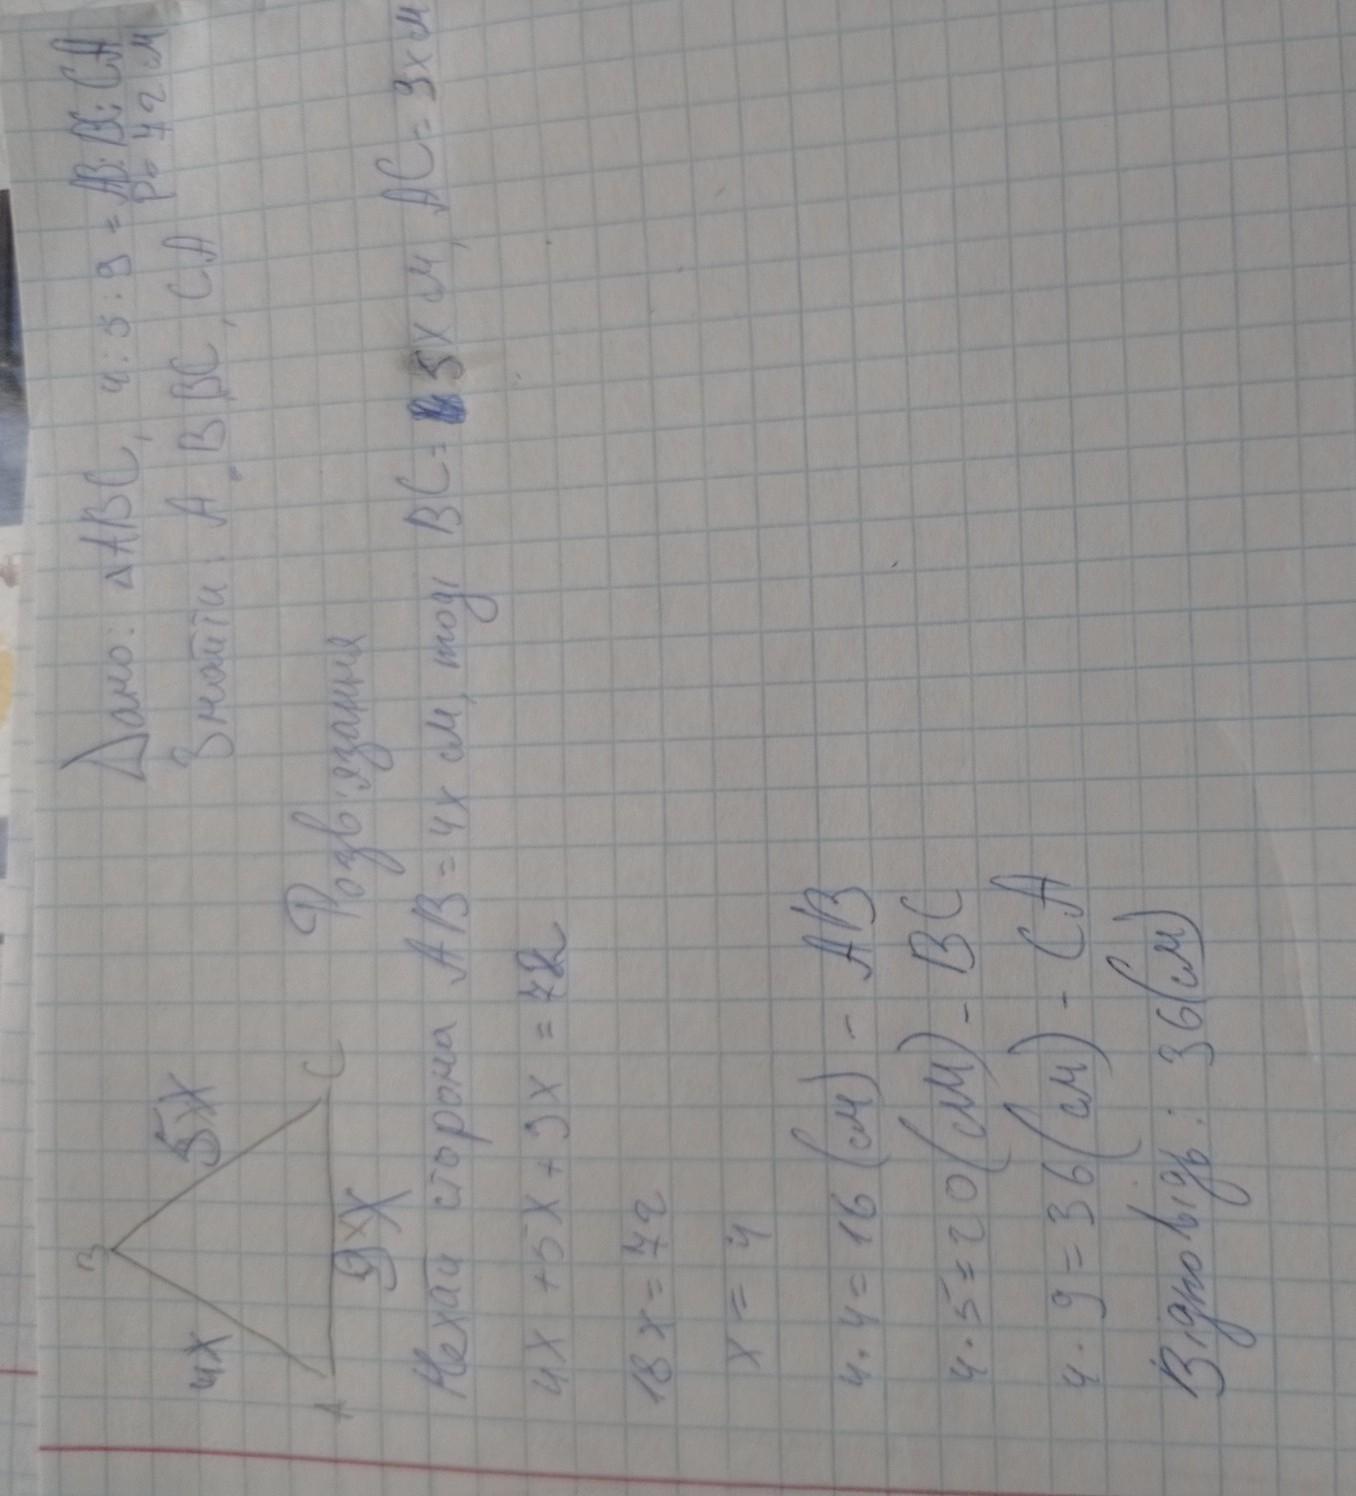 Дано: ΔABC, 4:5:9 = AB:BC:CA
P= 72 см
Знайти: AB, BC, CA
B
4x
5x
A
C
9x
Розв'язання
Нехай сторона AB = 4x см, тоді BC = 5x см, AC = 9x см
4x + 5x + 9x = 72
18x = 72
x = 4
4·4 = 16 (см) - AB
4·5 = 20 (см) - BC
4·9 = 36 (см) - CA
Відповідь: 36 (см)